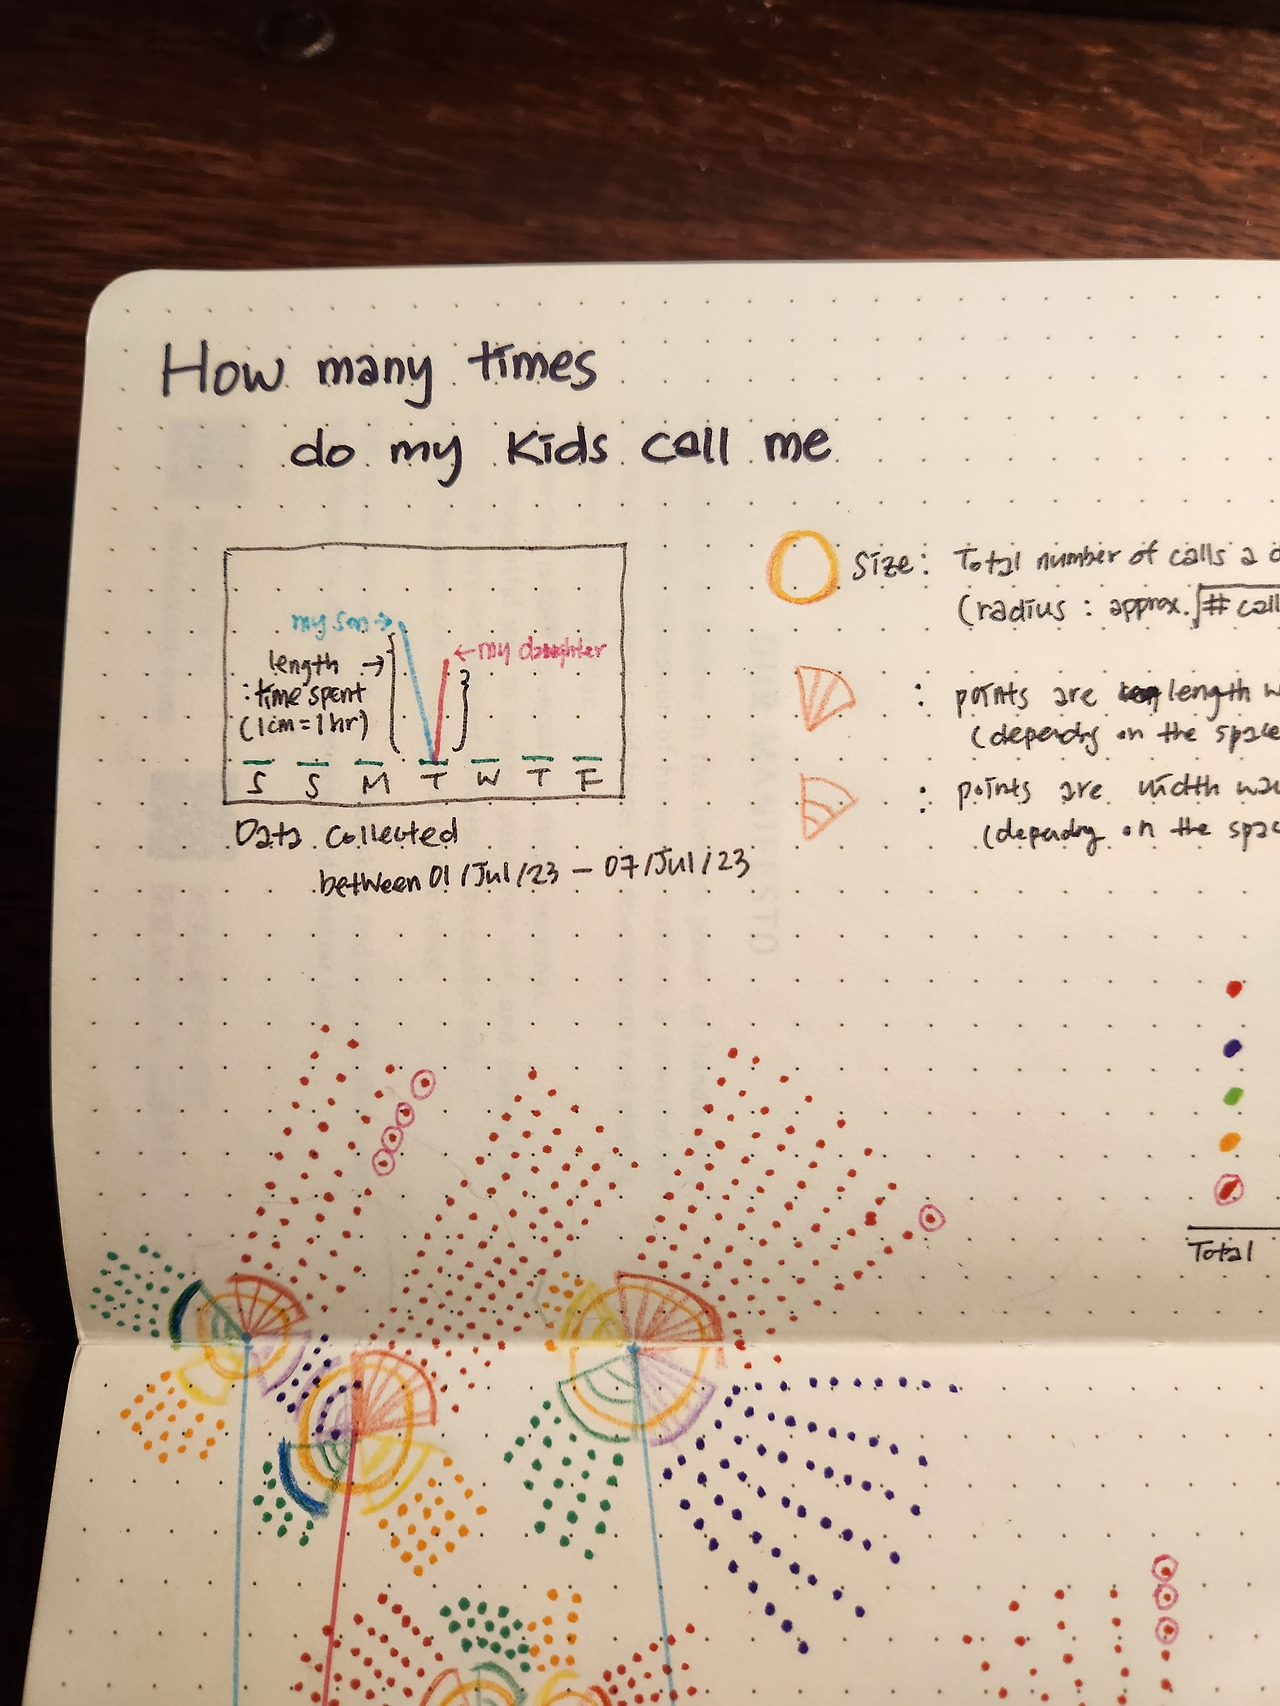 How many times
do my kids call me
my son →
← my daughter
length →
: time spent
(1cm = 1 hr)
S S M T W T F
Data collected
between 01/Jul/23 – 07/Jul/23
Size : Total number of calls a d
(radius : approx. √# call
: points are length w
(dependng on the space
: points are width wa
(dependng on the spac
Total